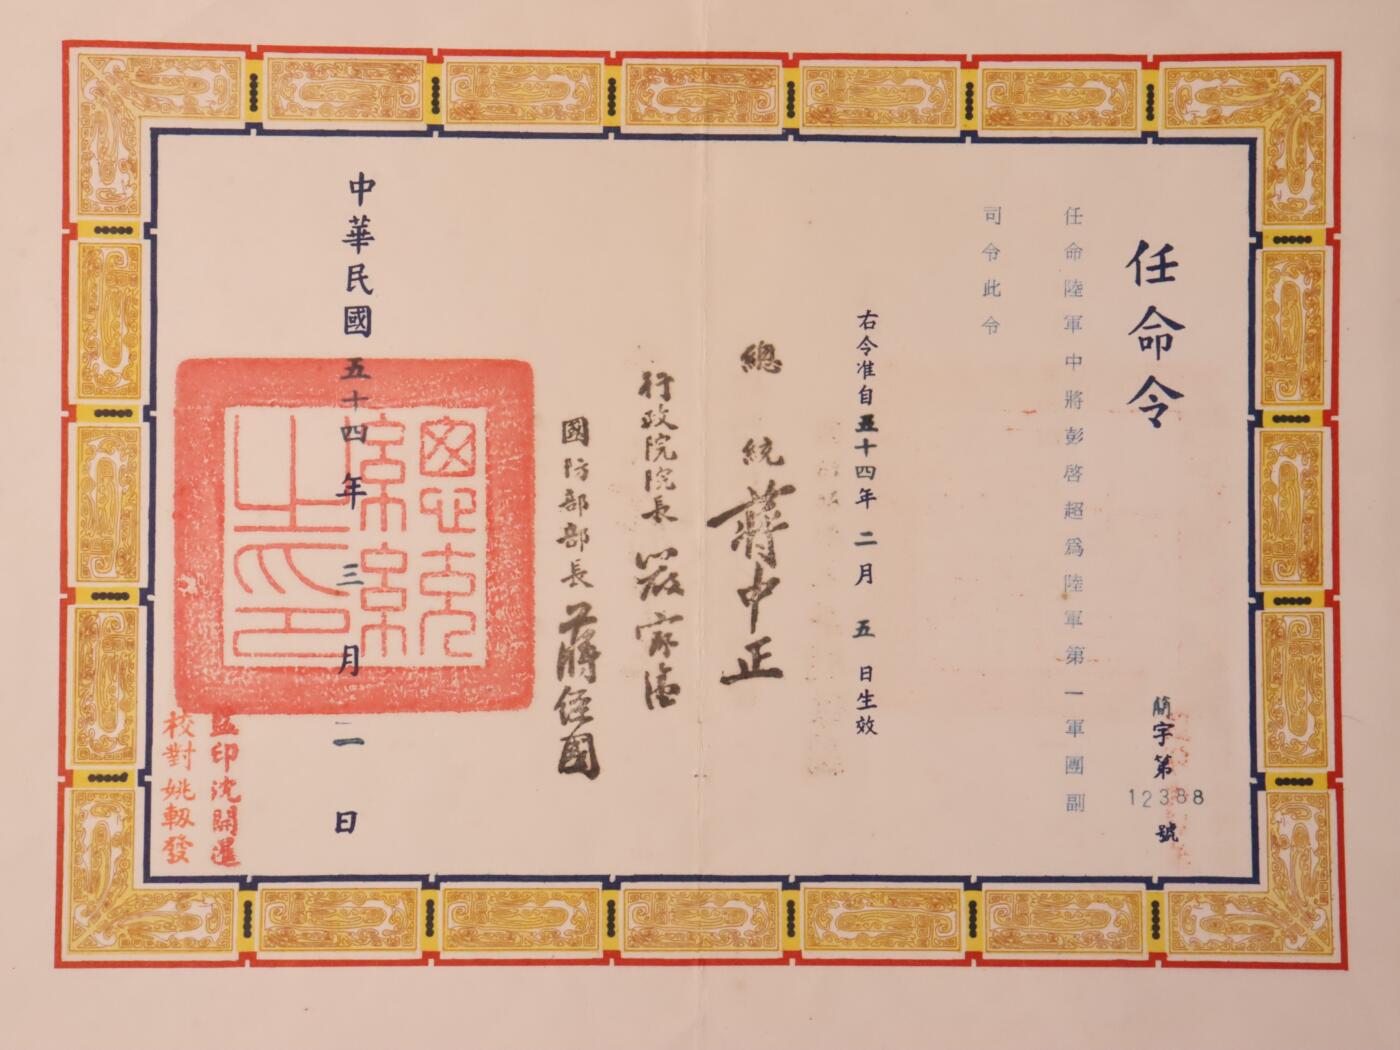 任命令
簡字第
12388
號
任命陸軍中將彭啓超爲陸軍第一軍團副
司令此令
右令准自五十四年二月五日生效
總統 蔣中正
行政院院長 嚴家淦
國防部部長 蔣經國
中華民國五十四年三月二日
總統
之印
監印沈開暹
校對姚軔發